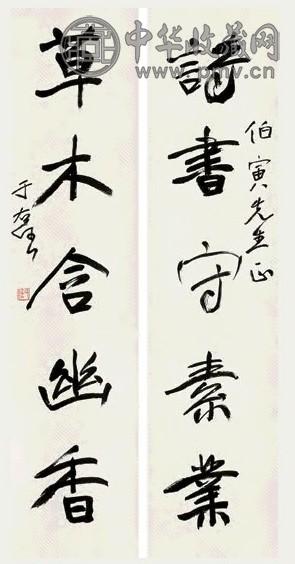 詩書守素業
伯寅先生正
草木含幽香
于右任
中华收藏网
www.pmv.cn